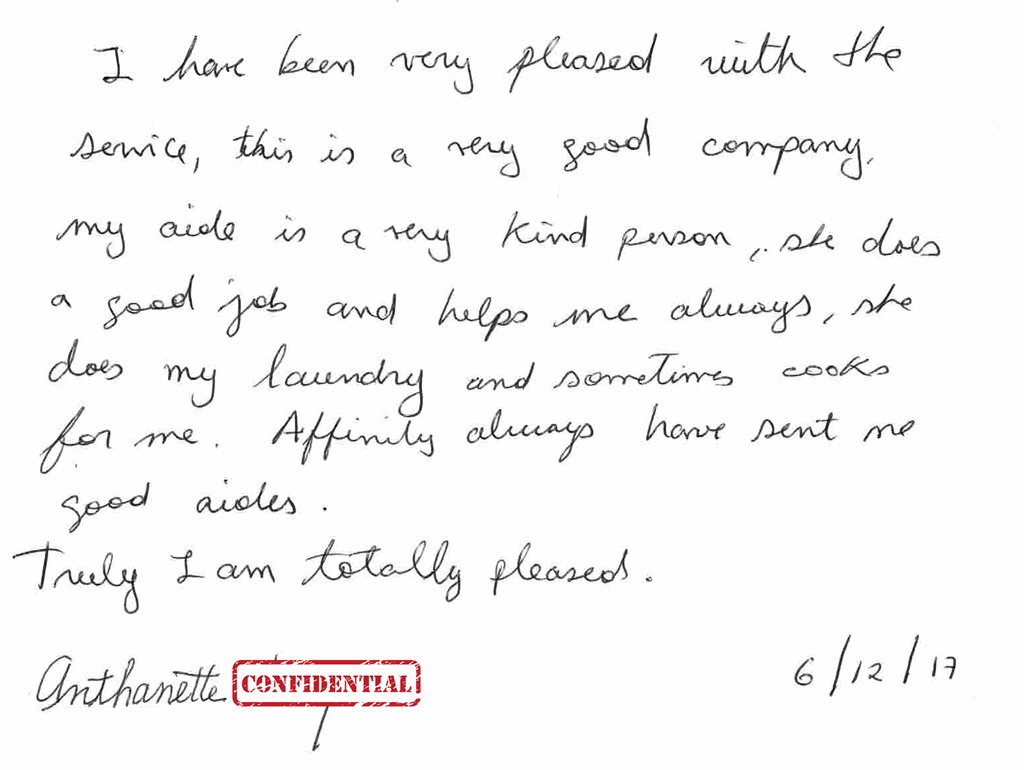 I have been very pleased with the
service, this is a very good company.
my aide is a very kind person, she does
a good job and helps me always, she
does my laundry and sometimes cooks
for me. Affinity always have sent me
good aides.
Truly I am totally pleased.
Anthanette CONFIDENTIAL 6/12/17